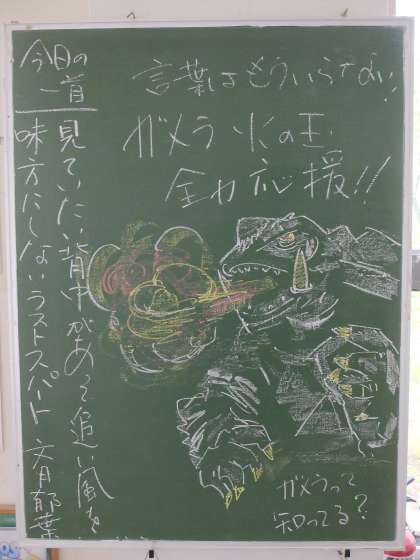 今日の
一首
見ていたい背中があって追い風を
味方にしないラストスパート 文月郁葉
言葉はもういらない!
ガメラ 火の玉
全力応援!!
ガメラって
知ってる?